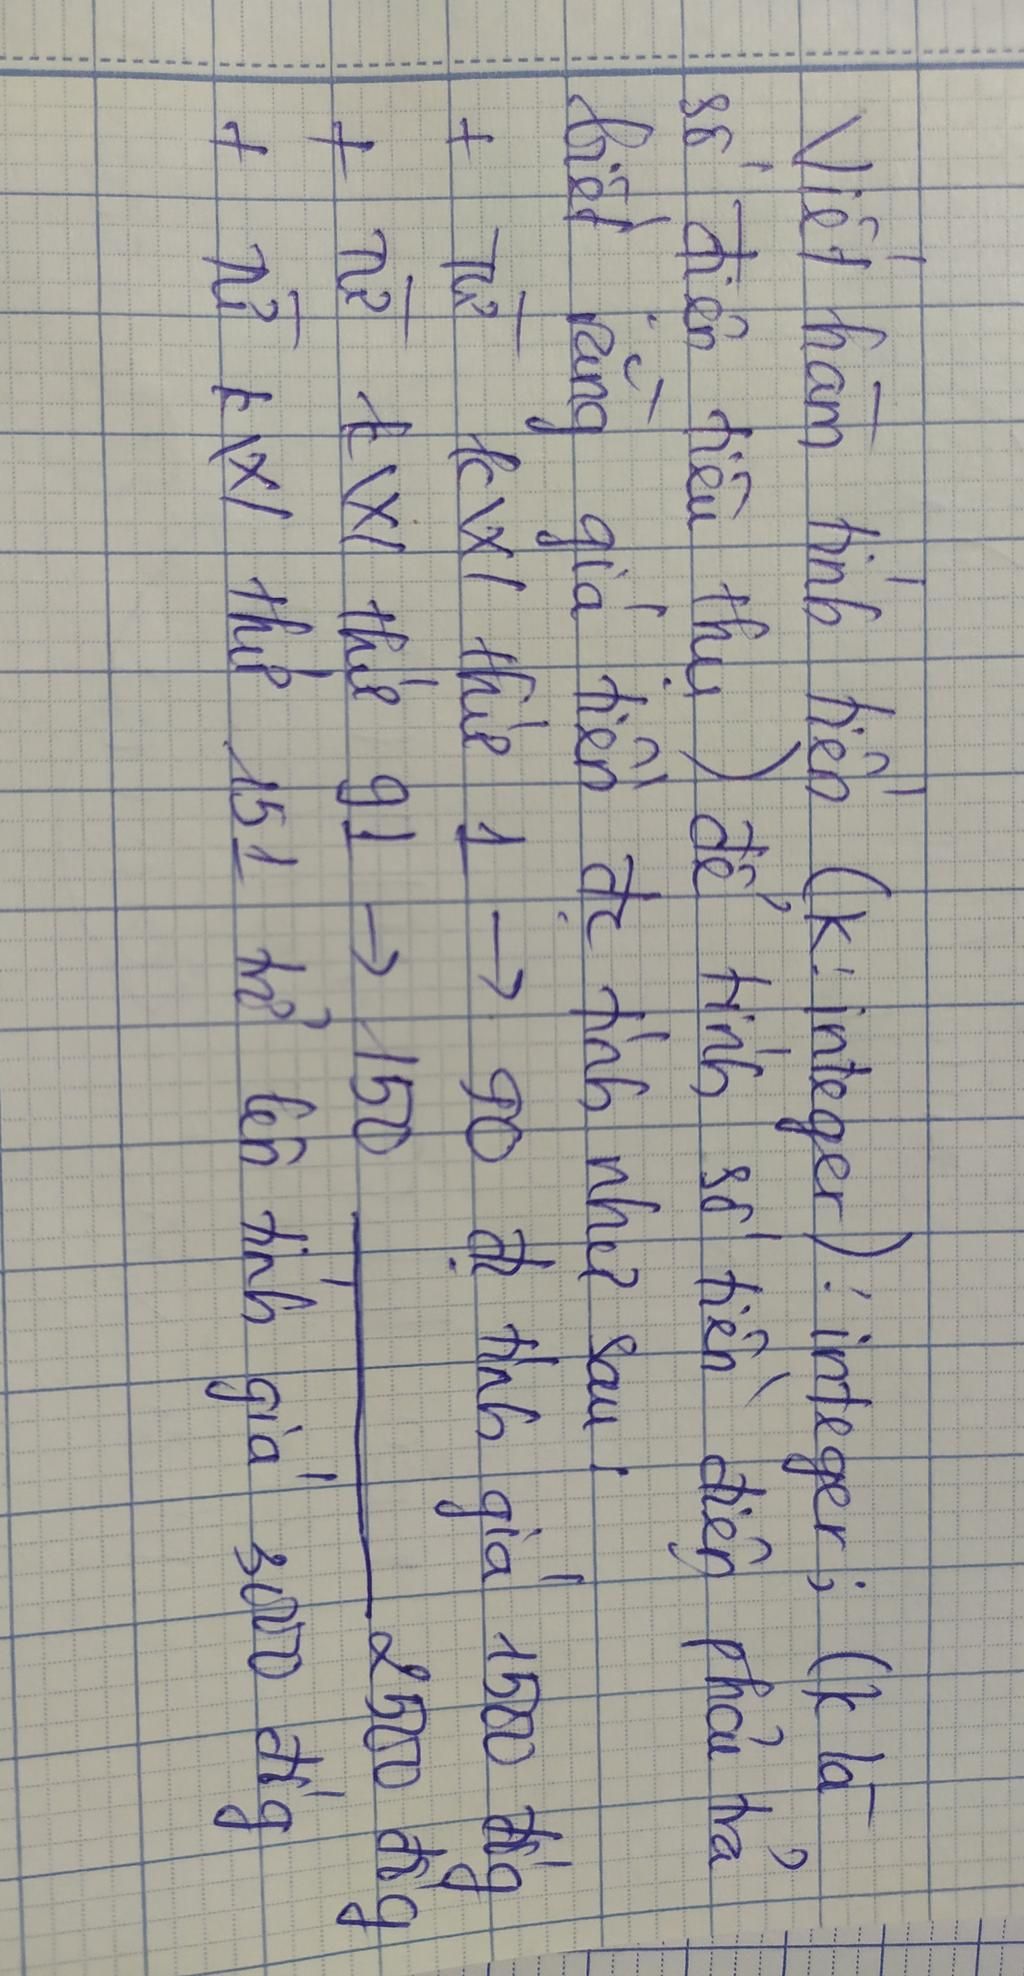 Viết hàm tính tiền (k: integer): integer; (k là
số điện tiêu thụ) để tính số tiền điện phải trả
biết rằng giá tiền đc tính như sau:
+ Từ k\x/ thứ 1 → 90 đc tính giá 1500 đ/g
+ Từ k\x/ thứ 91 → 150 ——— 2500 đ/g
+ Từ k\x/ thứ 151 trở lên tính giá 3000 đ/g